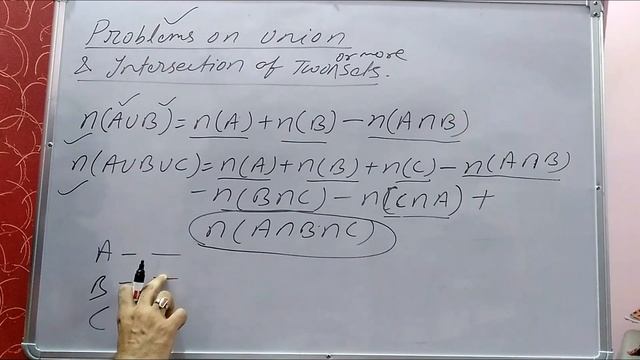 Problems on union
& Intersection of Two or more sets.
n(A∪B) = n(A) + n(B) - n(A∩B)
n(A∪B∪C) = n(A) + n(B) + n(C) - n(A∩B)
- n(B∩C) - n(C∩A) +
n(A∩B∩C)
A - —
B - —
C